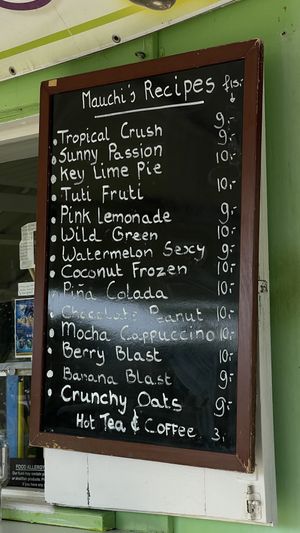 Mauchi's Recipes fls:-
Tropical Crush 9:-
Sunny Passion 9:-
Key Lime Pie 10:-
Tuti Fruti 10:-
Pink Lemonade 9:-
Wild Green 10:-
Watermelon Sexy 9:-
Coconut Frozen 10:-
Piña Colada 10:-
Chocolate Peanut 10:-
Mocha Cappuccino 10:-
Berry Blast 10:-
Banana Blast 9:-
Crunchy Oats 9:-
Hot Tea & Coffee 3:-
FOOD ALLERGY